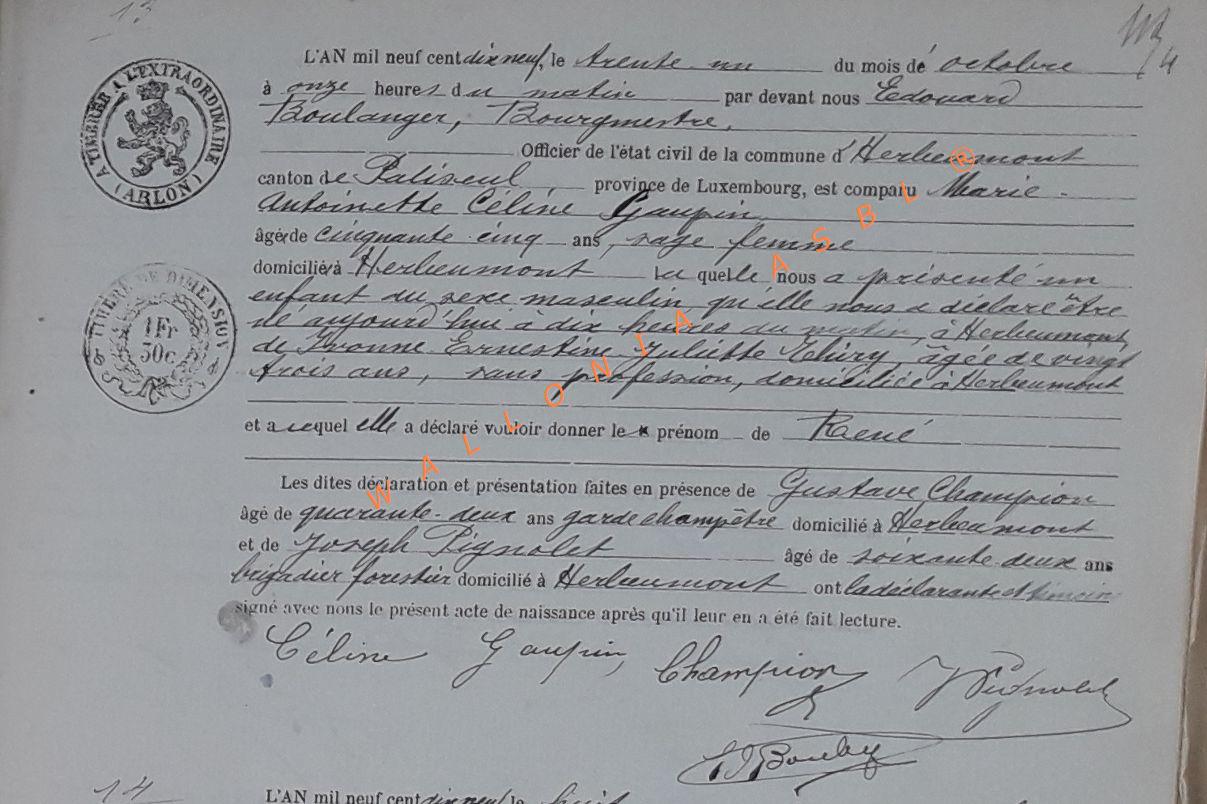 13
L'AN mil neuf cent dix neuf, le trente un du mois de octobre
à onze heures du matin par devant nous Edouard
Boulanger, Bourgmestre,
Officier de l'état civil de la commune d'Herbeumont
canton de Paliseul province de Luxembourg, est comparu Marie
Antoinette Céline Gaupin
âgé de cinquante cinq ans, sage femme
domicilié à Herbeumont laquelle, nous a présenté un
enfant du sexe masculin qu'elle nous a déclaré être
né aujourd'hui à dix heures du matin, à Herbeumont,
de Yvonne Ernestine Juliette Thiry, âgée de vingt
trois ans, sans profession, domiciliée à Herbeumont
et auquel elle a déclaré vouloir donner le prénom de René
Les dites déclaration et présentation faites en présence de Gustave Champion
âgé de quarante-deux ans garde champêtre domicilié à Herbeumont
et de Joseph Pignolet âgé de soixante-deux ans
brigadier forestier domicilié à Herbeumont ont la déclarante et témoins
signé avec nous le présent acte de naissance après qu'il leur en a été fait lecture.
Céline Gaupin, Champion J Pignolet
14
L'AN mil neuf cent dix neuf le huit
A TIMBRER A L'EXTRAORDINAIRE
(ARLON)
TIMBRE DE DIMENSION
1 Fr
50c.
WALLONIA ASBL ®